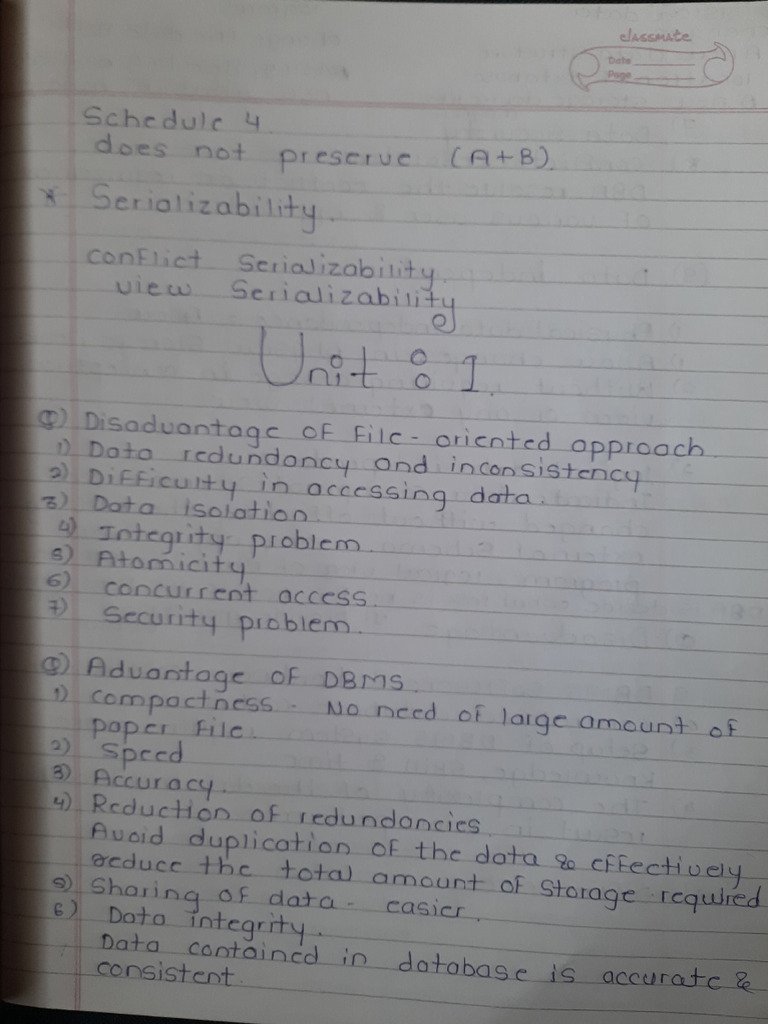 classmate
Date
Page
Schedule 4
does not preserve (A+B).
* Serializability.
conflict Serializability.
view Serializability
Unit : 1.
Disadvantage of File-oriented approach
1) Data redundancy and inconsistency
2) Difficulty in accessing data.
3) Data isolation
4) Integrity problem.
5) Atomicity
6) concurrent access.
7) Security problem.
Advantage of DBMS.
1) compactness - No need of large amount of
paper file.
2) Speed
3) Accuracy.
4) Reduction of redundancies.
Avoid duplication of the data & effectively
reduce the total amount of storage required
5) Sharing of data - easier.
6) Data integrity.
Data contained in database is accurate &
consistent.